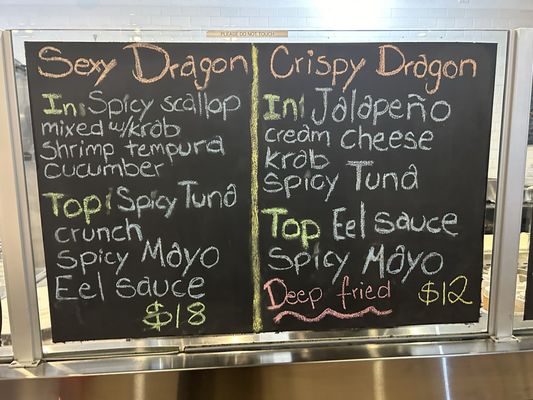 PLEASE DO NOT TOUCH
Sexy Dragon
In: Spicy scallop
mixed w/krab
Shrimp tempura
cucumber
Top: Spicy Tuna
crunch
spicy Mayo
Eel sauce
$18
Crispy Dragon
In: Jalapeño
cream cheese
krab
spicy Tuna
Top: Eel sauce
spicy Mayo
Deep fried $12